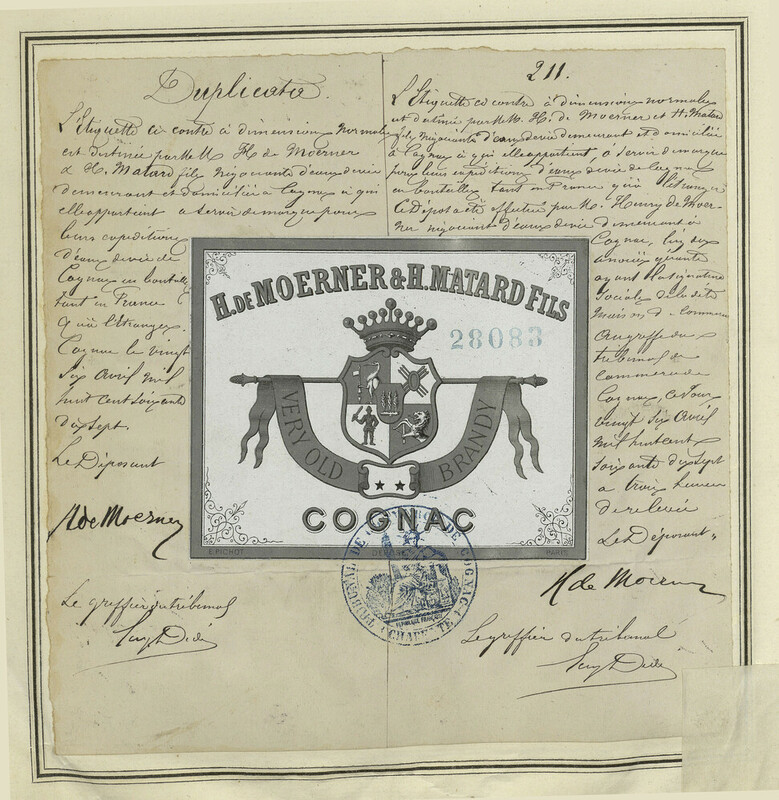 Duplicata.
L'Etiquette ci contre à dimensions normales
est destinée par Mr M H de Moerner
& H. Matard fils négociants d'eaux de vie
demeurant et domiciliés à Cognac à qui
elle appartient à servir de marque pour
leurs expéditions
d'eaux de vie de
Cognac en bouteilles
tant en France
qu'à l'étranger.
Cognac le vingt
six avril mil
huit cent soixante
dix sept.
Le Déposant
H de Moerner
Le greffier du tribunal
211.
L'Etiquette ci contre à dimensions normales
est destinée par M M. H. de Moerner et H. Matard
fils négociants d'eaux de vie demeurant et domiciliés
à Cognac à qui elle appartient, à servir de marque
pour leurs expéditions d'eaux de vie de Cognac
en bouteilles tant en France qu'à l'étranger
Le Dépôt a été effectué par M. Henry de Moer-
ner négociant d'eaux de vie demeurant à
Cognac,
ayant la signature
sociale de la dite
maison de commerce
au greffe du
tribunal de
commerce de
Cognac, ce jour
vingt six avril
mil huit cent
soixante dix sept
à trois heures
de relevée
Le Déposant
H de Moerner
Le greffier du tribunal
H. DE MOERNER & H. MATARD FILS
28083
VERY OLD BRANDY
COGNAC
E. PICHOT
PARIS
TRIBUNAL DE COMMERCE DE COGNAC
REPUBLIQUE FRANÇAISE
(CHARENTE)